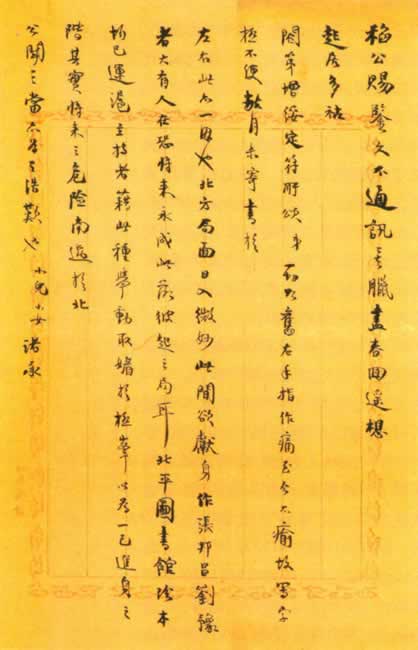 稻公賜鑒久不通訊矣臘盡春回遙想
起居多祜
閤第增綏定符所頌弟如舊右手指作痛至今不瘉故寫字
極不便數月未寄書於
左右此亦一因也北方局面日入微妙此間欲獻身作張邦昌劉豫
者大有人在恐將來永成此落彼起之局耳北平圖書館珍本
均已運滬主持者藉此種舉動取媚於極峯以為一己進身之
階其實將來之危險南過於北
公聞之當亦為之浩歎也小兒小女諸承